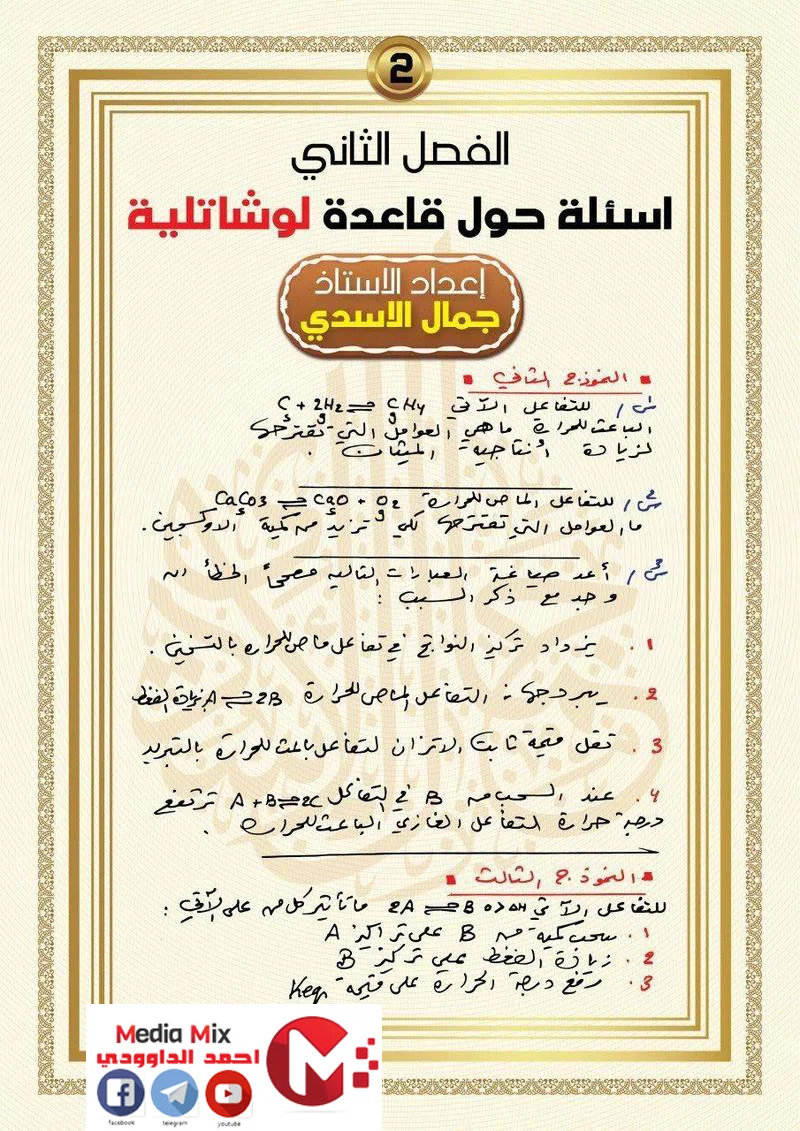 2
الفصل الثاني
اسئلة حول قاعدة لوشاتلية
إعداد الاستاذ
جمال الاسدي
النموذج الثاني
س1/ للتفاعل الآتي C + 2H2 ⇌ CH4
الباعث للحرارة ما هي العوامل التي تقترحها
لزيادة أنتاجية الميثان .
س2/ للتفاعل الماص للحرارة CaCO3 ⇌ CaO + O2
ما العوامل التي تقترحها لكي تزيد من كمية الاوكسجين .
س3/ أعد صياغة العبارات التالية مصححاً الخطأ ان
وجد مع ذكر السبب :
1. يزداد تركيز النواتج في تفاعل ماص للحرارة بالتسخين .
2. يبرد جهاز التفاعل الماص للحرارة A ⇌ 2B بزيادة الضغط
3. تقل قيمة ثابت الاتزان لتفاعل باعث للحرارة بالتبريد
4. عند السحب من B في التفاعل A + B ⇌ 2C ترتفع
درجة حرارة التفاعل الغازي الباعث للحرارة .
النموذج الثالث
للتفاعل الآتي 2A ⇌ B 0>ΔH ما تأثير كل من على الآتي :
1. سحب كمية من B على تراكيز A
2. زيادة الضغط على تركيز B
3. رفع درجة الحرارة على قيمة Keq
Media Mix
احمد الداوودي
facebook
telegram
YouTube
youtube